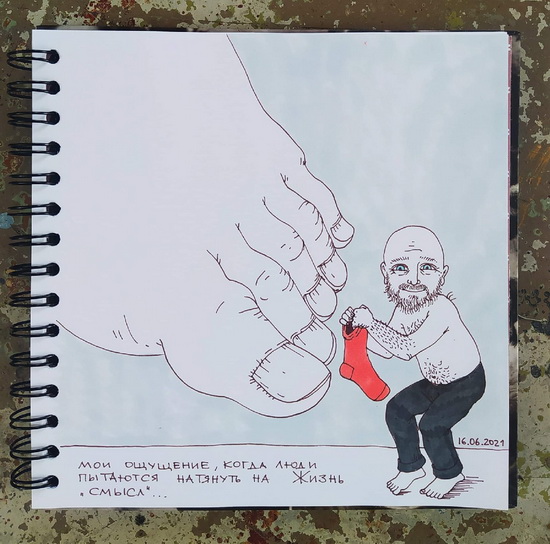 16.06.2021
МОИ ОЩУЩЕНИЕ, КОГДА ЛЮДИ
ПЫТАЮТСЯ НАТЯНУТЬ НА ЖИЗНЬ
„СМЫСЛ"...